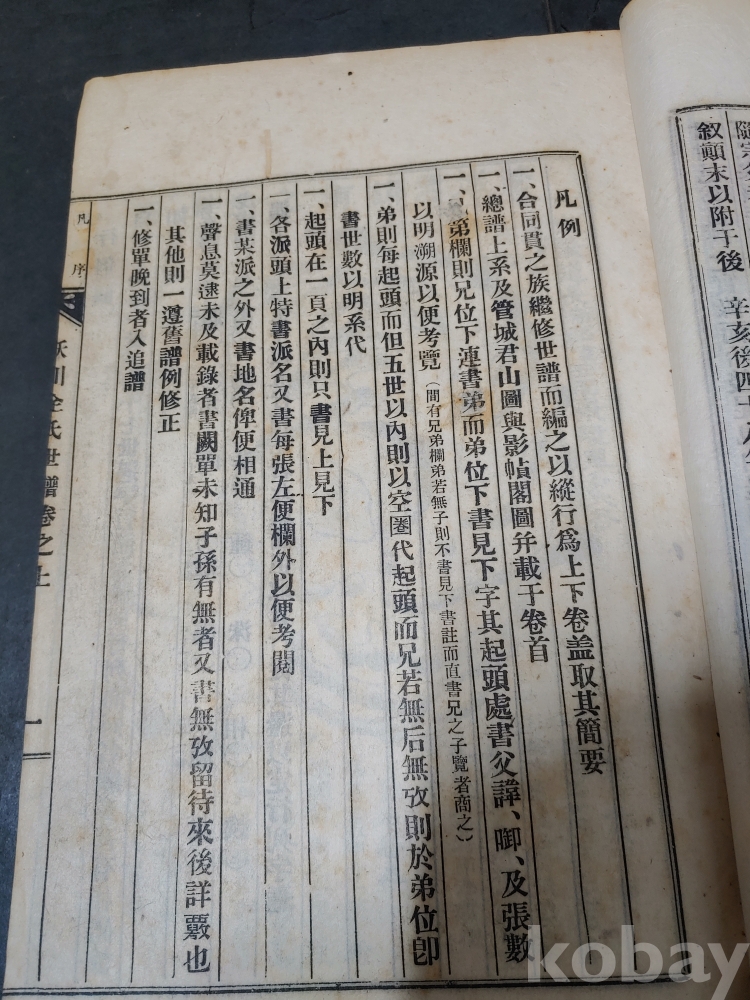 隨宗
叙顚末以附于後 辛亥後四十八
凡例
一、合同貫之族繼修世譜而編之以縱行爲上下卷盖取其簡要
一、總譜上系及管城君山圖與影幀閣圖幷載于卷首
一、兄弟欄則兄位下連書弟而弟位下書見下字其起頭處書父諱、啣、及張數
以明溯源以便考覽(間有兄弟欄弟若無子則不書見下書註而直書兄之子覽者商之)
一、弟則每起頭而但五世以內則以空圏代起頭而兄若無后無攷則於弟位卽
書世數以明系代
一、起頭在一頁之內則只書見上見下
一、各派頭上特書派名又書每張左便欄外以便考閱
一、書某派之外又書地名俾便相通
一、聲息莫逮未及載錄者書闕單未知子孫有無者又書無攷留待來後詳覈也
其他則一遵舊譜例修正
一、修單晚到者入追譜
凡 序
川全氏世譜卷之上
一
kobay